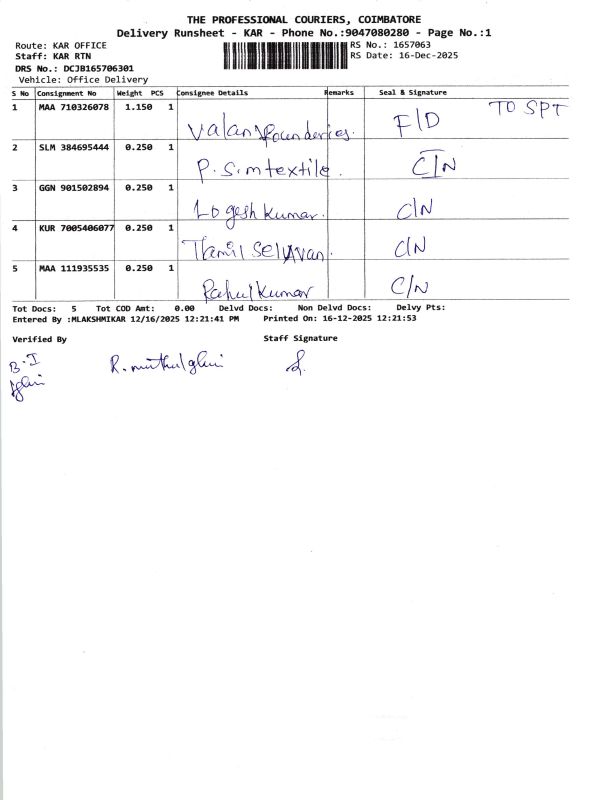 THE PROFESSIONAL COURIERS, COIMBATORE
Delivery Runsheet - KAR - Phone No.:9047080280 - Page No.:1
Route: KAR OFFICE RS No.: 1657063
Staff: KAR RTN RS Date: 16-Dec-2025
DRS No.: DCJB165706301
Vehicle: Office Delivery
S No Consignment No Weight PCS Consignee Details Remarks Seal & Signature
1 MAA 710326078 1.150 1 Valan Founderies. F/D TO SPT
2 SLM 384695444 0.250 1 P.S.m textile. C/N
3 GGN 901502894 0.250 1 Logesh kumar. C/N
4 KUR 7005406077 0.250 1 Tamil Selvan. C/N
5 MAA 111935535 0.250 1 Rahul kumar C/N
Tot Docs: 5 Tot COD Amt: 0.00 Delvd Docs: Non Delvd Docs: Delvy Pts:
Entered By :MLAKSHMIKAR 12/16/2025 12:21:41 PM Printed On: 16-12-2025 12:21:53
Verified By Staff Signature